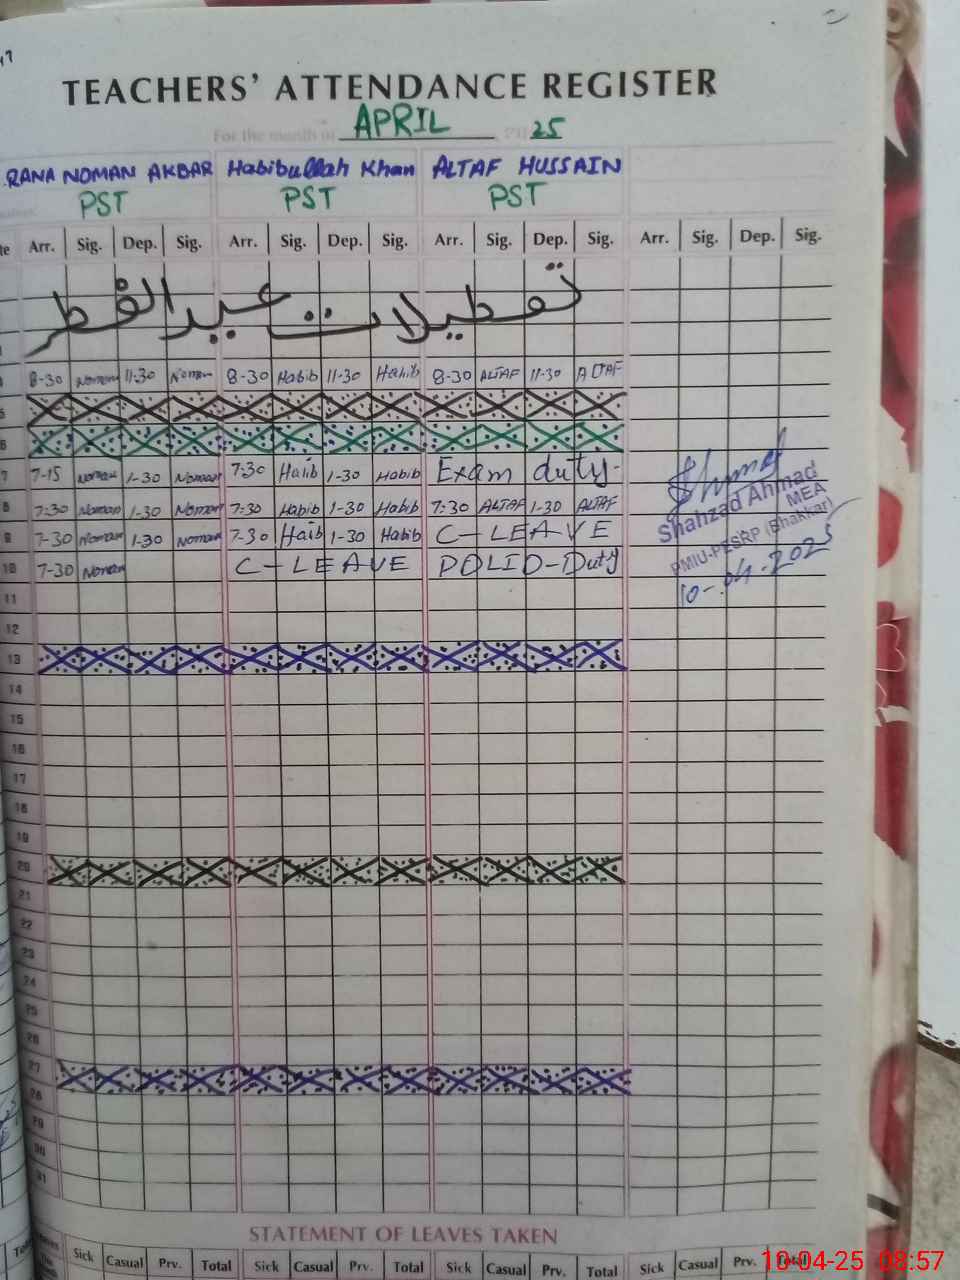 TEACHERS' ATTENDANCE REGISTER
For the month of APRIL 25
RANA NOMAN AKBAR Habibullah Khan ALTAF HUSSAIN
PST PST PST
Arr. Sig. Dep. Sig. Arr. Sig. Dep. Sig. Arr. Sig. Dep. Sig. Arr. Sig. Dep. Sig.
تعطیلات عیدالفطر
8-30 Noman 11-30 Noman 8-30 Habib 11-30 Habib 8-30 ALTAF 11-30 ALTAF
5
6
7 7-15 Noman 1-30 Noman 7:30 Habib 1-30 Habib Exam duty-
8 7:30 Noman 1-30 Noman 7:30 Habib 1-30 Habib 7:30 ALTAF 1-30 ALTAF
9 7-30 Noman 1-30 Noman 7-30 Haib 1-30 Habib C-LEAVE
10 7-30 Noman C-LEAVE POLIO-Duty
Shahzad Ahmad
MEA
PMIU-PESRP (Bhakkar)
10-04-2025
11
12
13
14
15
16
17
18
19
20
21
22
23
24
25
26
27
28
29
30
31
STATEMENT OF LEAVES TAKEN
Sick Casual Prv. Total Sick Casual Prv. Total Sick Casual Prv. Total Sick Casual Prv. Total
10-04-25 08:57